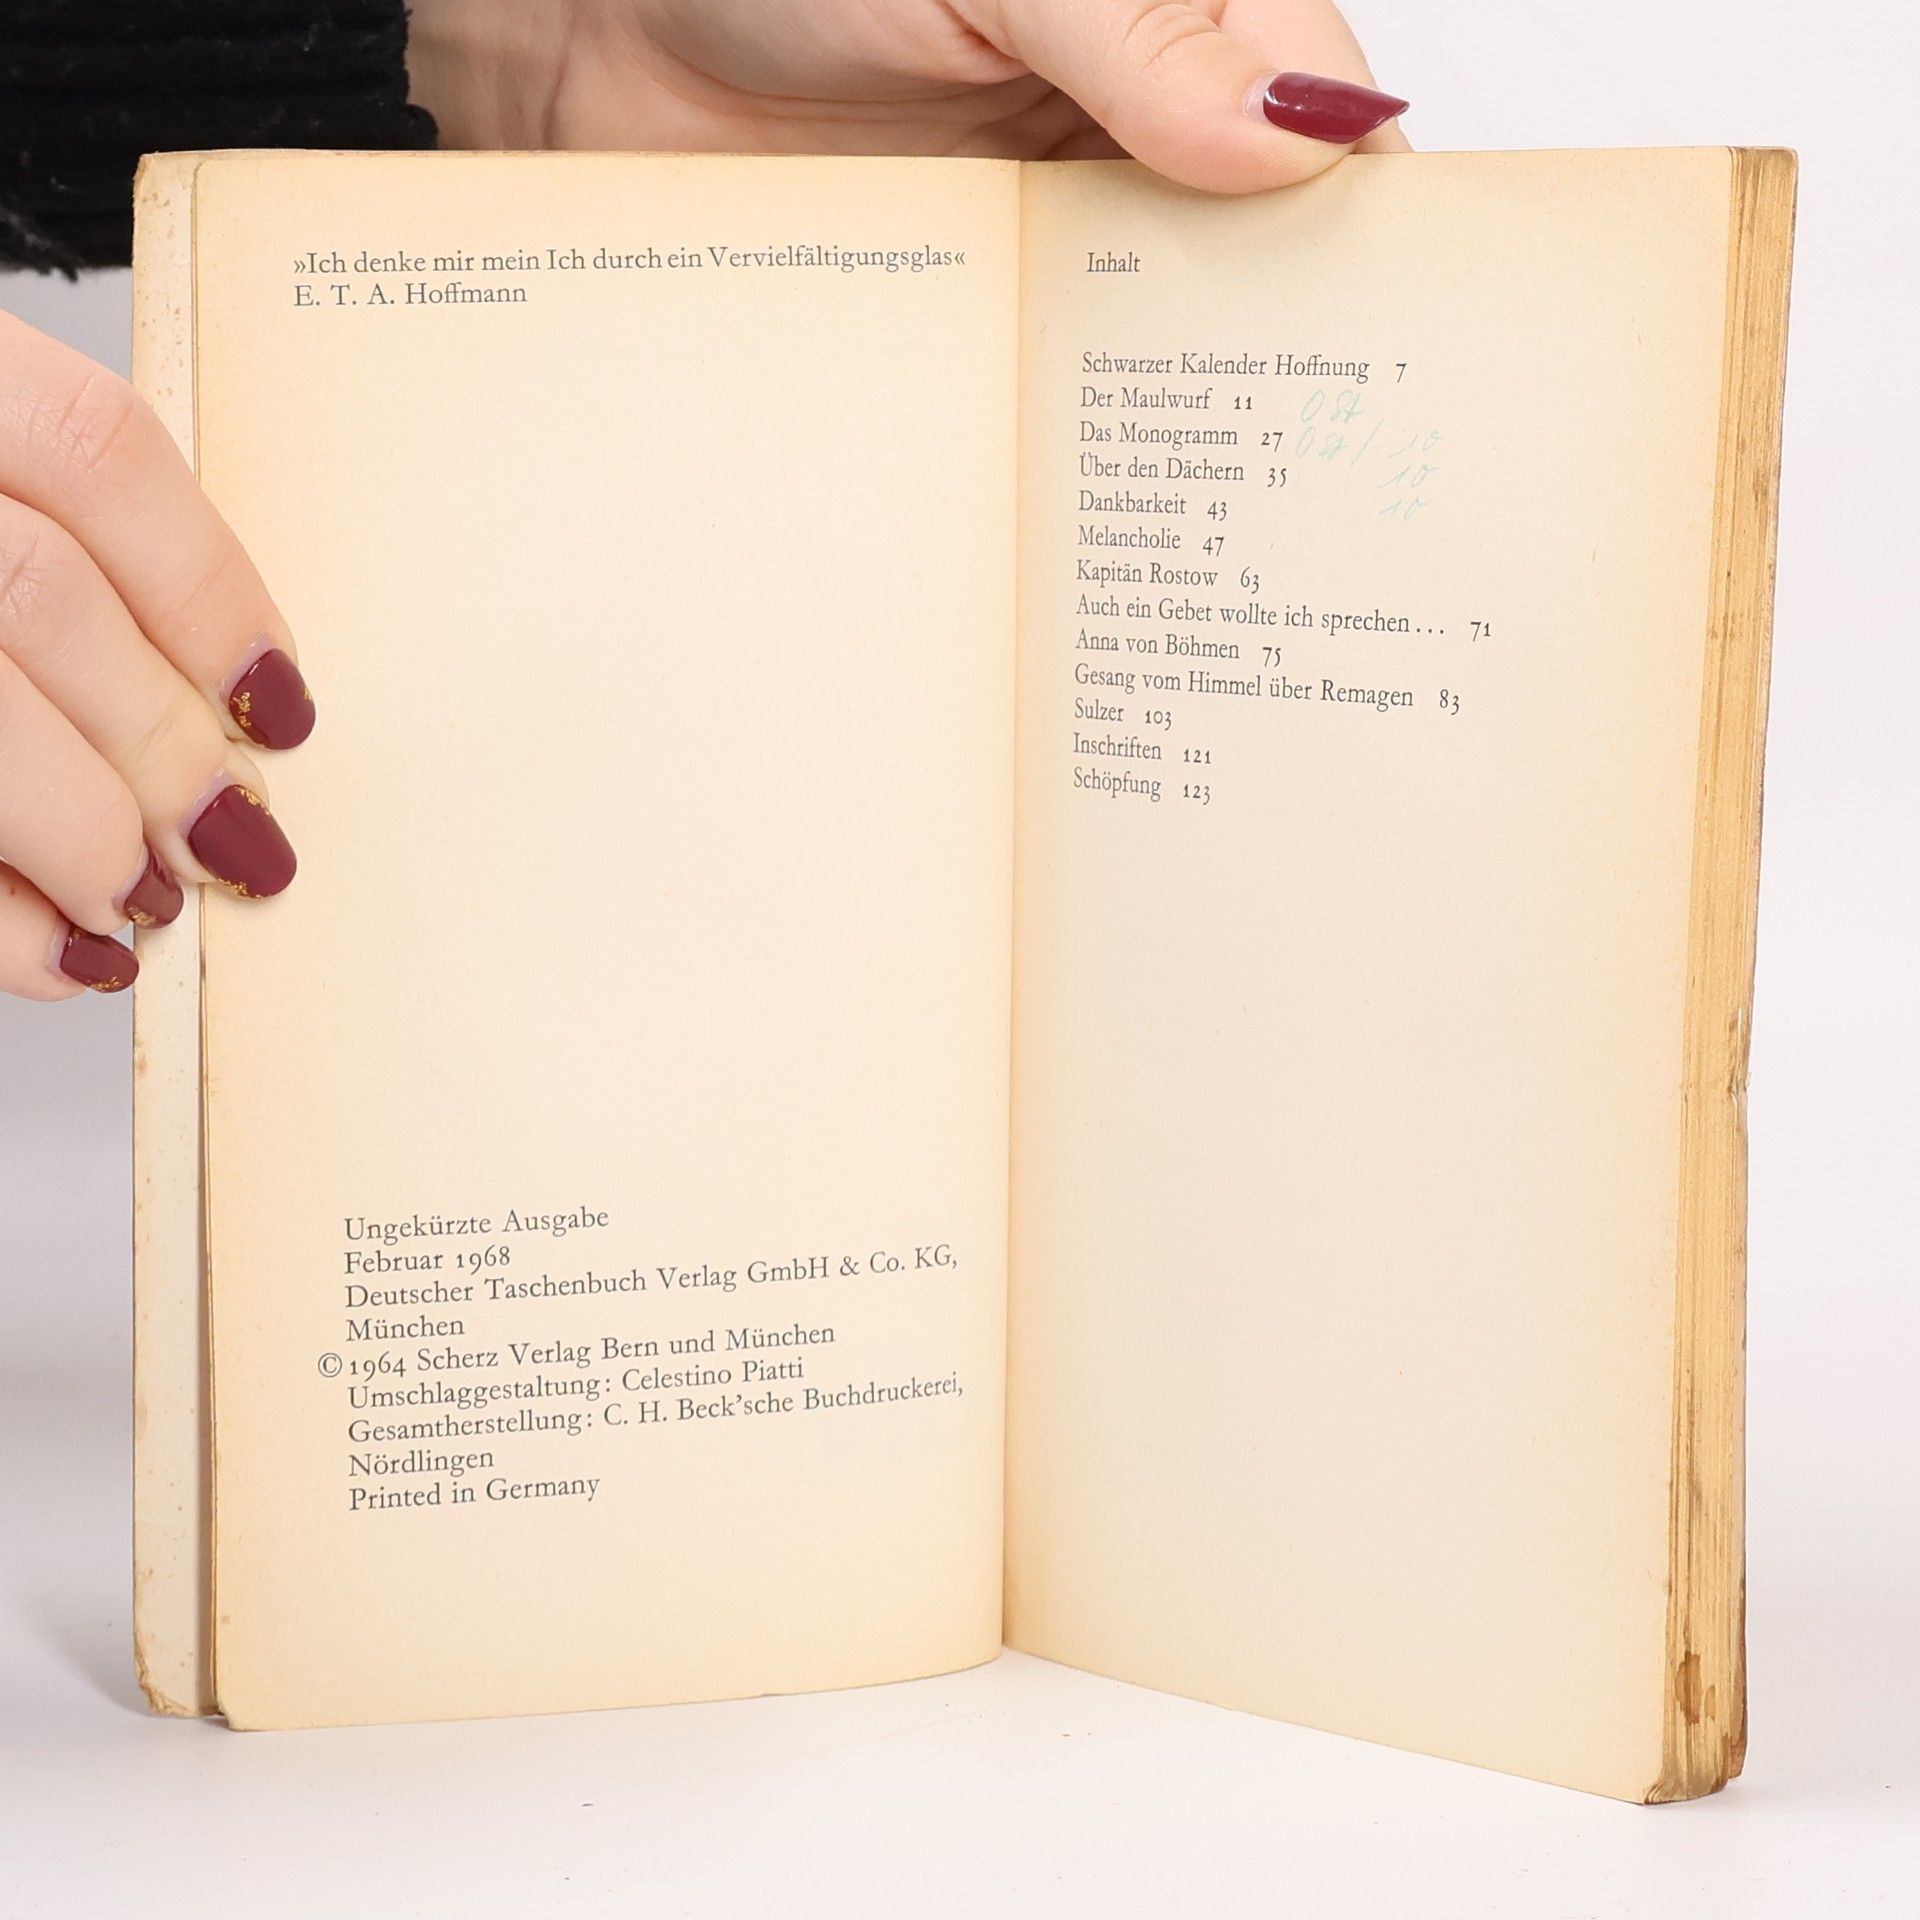 »Ich denke mir mein Ich durch ein Vervielfältigungsglas«
E. T. A. Hoffmann
Ungekürzte Ausgabe
Februar 1968
Deutscher Taschenbuch Verlag GmbH & Co. KG,
München
© 1964 Scherz Verlag Bern und München
Umschlaggestaltung: Celestino Piatti
Gesamtherstellung: C. H. Beck'sche Buchdruckerei,
Nördlingen
Printed in Germany
Inhalt
Schwarzer Kalender Hoffnung 7
Der Maulwurf 11
Das Monogramm 27 10
Über den Dächern 35 10
Dankbarkeit 43 10
Melancholie 47
Kapitän Rostow 63
Auch ein Gebet wollte ich sprechen... 71
Anna von Böhmen 75
Gesang vom Himmel über Remagen 83
Sulzer 103
Inschriften 121
Schöpfung 123